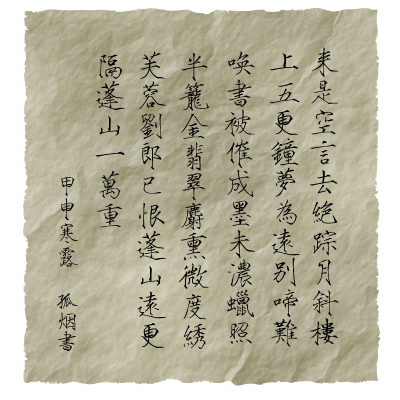 来是空言去绝踪月斜楼
上五更鐘夢為遠別啼難
唤書被催成墨未濃蠟照
半籠金翡翠麝熏微度绣
芙蓉劉郎已恨蓬山遠更
隔蓬山一萬重
甲申寒露 孤烟書